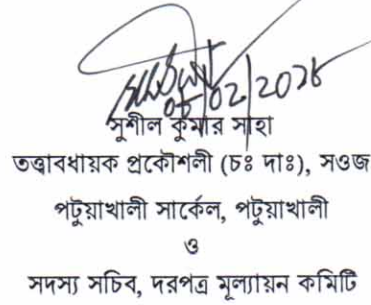 ০৮/০২/২০১৮
সুশীল কুমার সাহা
তত্ত্বাবধায়ক প্রকৌশলী (চঃ দাঃ), সওজ
পটুয়াখালী সার্কেল, পটুয়াখালী
ও
সদস্য সচিব, দরপত্র মূল্যায়ন কমিটি